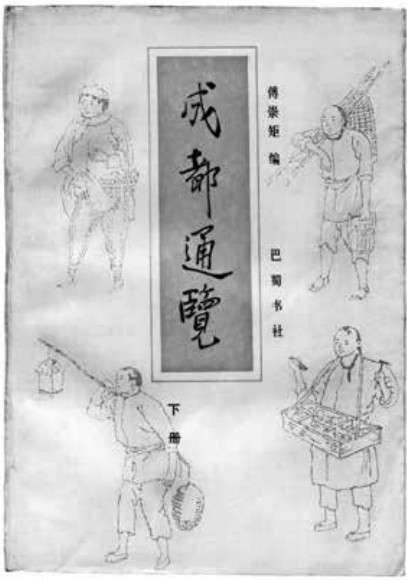 成都通覽
傅崇矩 编
巴蜀书社
下册